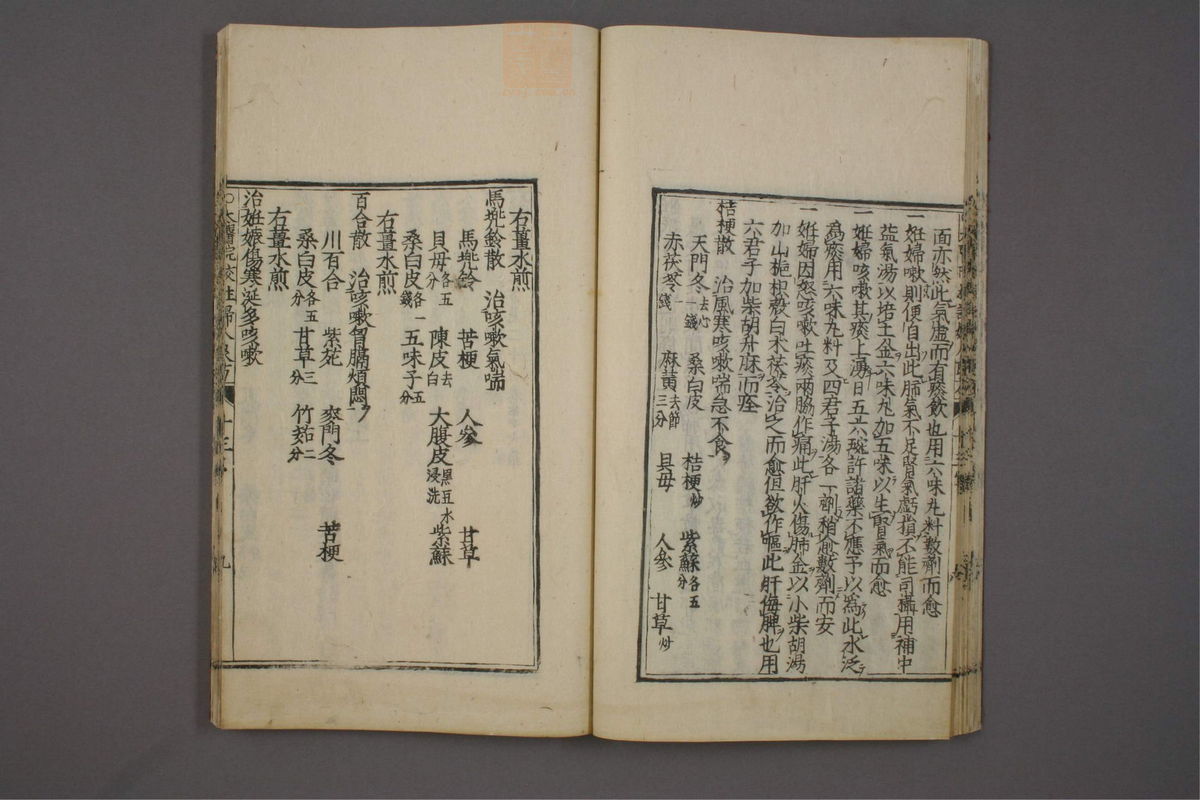 面亦然此氣虛而有痰飲也用六味丸料數劑而愈
一妊婦嗽則便自出此肺氣不足腎氣虧損不能司攝用補中
益氣湯以培土金六味丸加五味以生腎氣而愈
一妊婦咳嗽其痰上湧日五六碗許諸藥不應予以爲此水泛
爲痰用六味丸料及四君子湯各一劑稍愈數劑而安
一妊婦因怒咳嗽吐痰兩脇作痛此肝火傷肺金以小柴胡湯
加山梔枳殼白朮茯苓治之而愈但欲作嘔此肝侮脾也用
六君子加柴胡升麻而痊
桔梗散 治風寒咳嗽喘急不食
天門冬去心一錢 桑白皮 桔梗炒 紫蘇各五分
赤茯苓一錢 麻黃去節三分 貝母 人參 甘草炒
右薑水煎
馬兜鈴散 治咳嗽氣喘
馬兜鈴 苦梗 人參 甘草
貝母各五分 陳皮去白 大腹皮黑豆水浸洗 紫蘇
桑白皮各一錢 五味子五分
右薑水煎
百合散 治咳嗽胷膈煩悶
川百合 紫菀 麥門冬 苦梗
桑白皮各五分 甘草三分 竹茹二分
右薑水煎
治妊娠傷寒涎多咳嗽
○太醫院校註婦人良方 十三 九